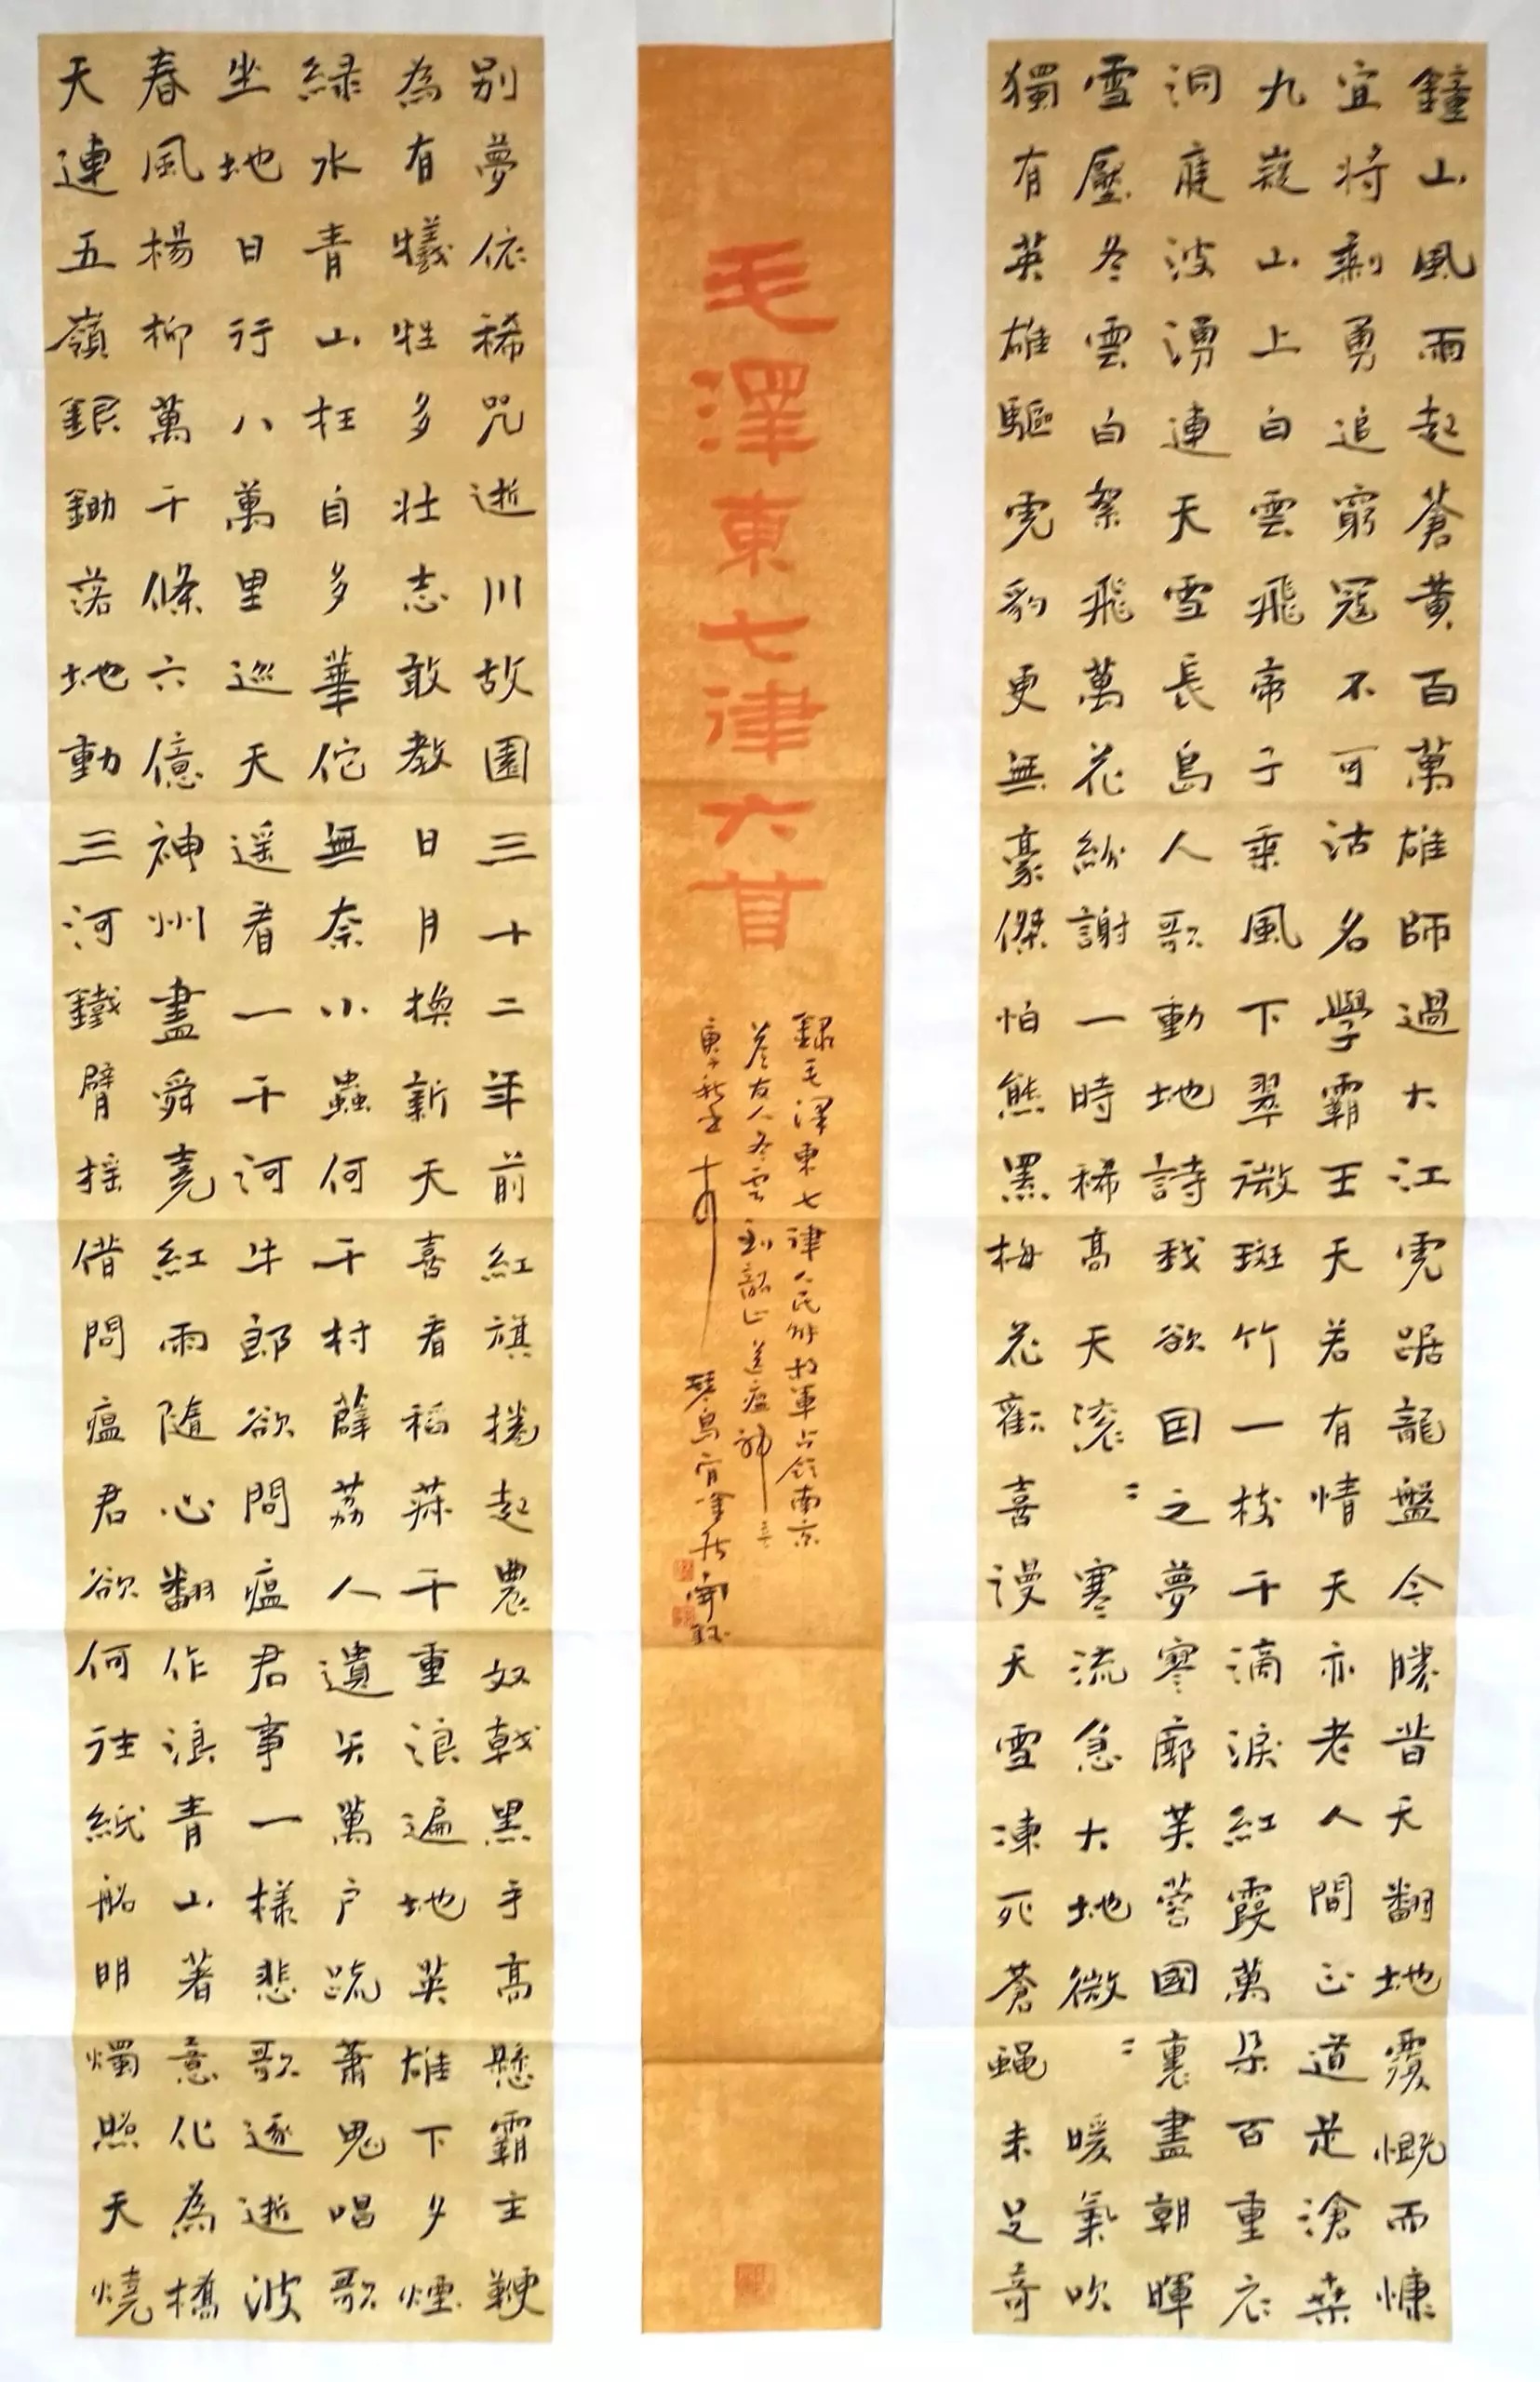 鐘山風雨起蒼黃百萬雄師過大江虎踞龍盤今勝昔天翻地覆慨而慷
宜將剩勇追窮寇不可沽名學霸王天若有情天亦老人間正道是滄桑
九嶷山上白雲飛帝子乘風下翠微斑竹一枝千滴淚紅霞萬朵百重衣
洞庭波湧連天雪長島人歌動地詩我欲因之夢寥廓芙蓉國裏盡朝暉
雪壓冬雲白絮飛萬花紛謝一時稀高天滾〻寒流急大地微〻暖氣吹
獨有英雄驅虎豹更無豪傑怕熊羆梅花歡喜漫天雪凍死蒼蠅未足奇
毛澤東七律六首
錄毛澤東七律人民解放軍占領南京
答友人冬雲到韶山送瘟神二首
庚子秋 琴島
別夢依稀咒逝川故園三十二年前紅旗捲起農奴戟黑手高懸霸主鞭
為有犧牲多壯志敢教日月換新天喜看稻菽千重浪遍地英雄下夕煙
綠水青山枉自多華佗無奈小蟲何千村薜荔人遺矢萬戶疏蕭鬼唱歌
坐地日行八萬里巡天遙看一千河牛郎欲問瘟君事一樣悲歌逐逝波
春風楊柳萬千條六億神州盡舜堯紅雨隨心翻作浪青山著意化為橋
天連五嶺銀鋤落地動三河鐵臂搖借問瘟君欲何往紙船明燭照天燒